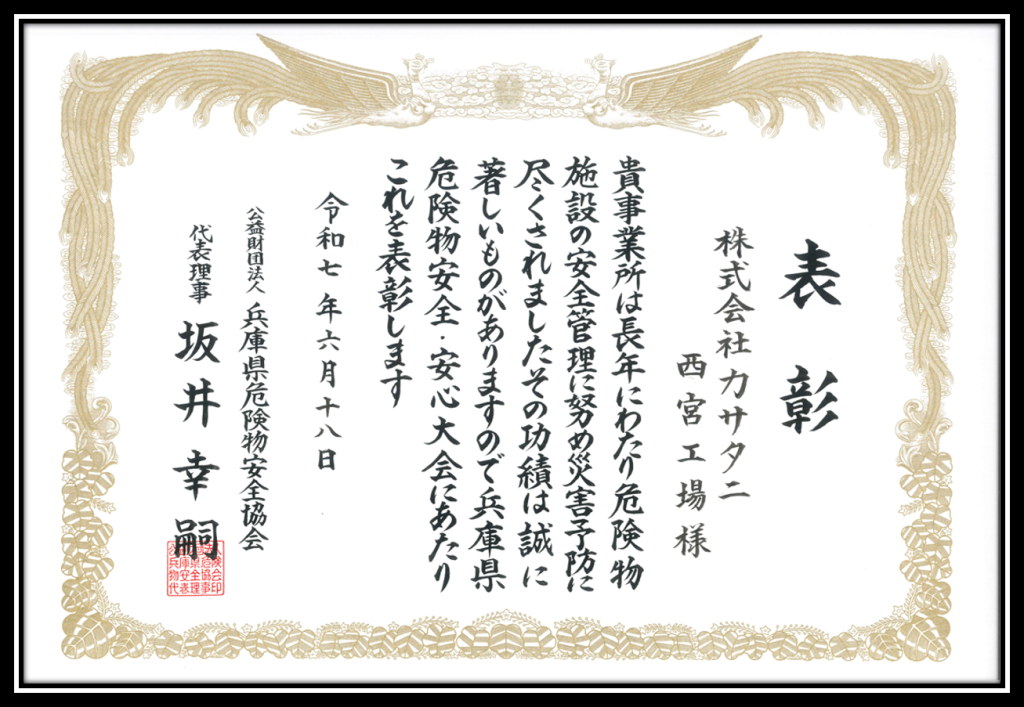 表彰
株式会社カサタニ
西宮工場様
貴事業所は長年にわたり危険物
施設の安全管理に努め災害予防に
尽くされましたその功績は誠に
著しいものがありますので兵庫県
危険物安全・安心大会にあたり
これを表彰します
令和七年六月十八日
公益財団法人 兵庫県危険物安全協会
代表理事 坂井幸嗣